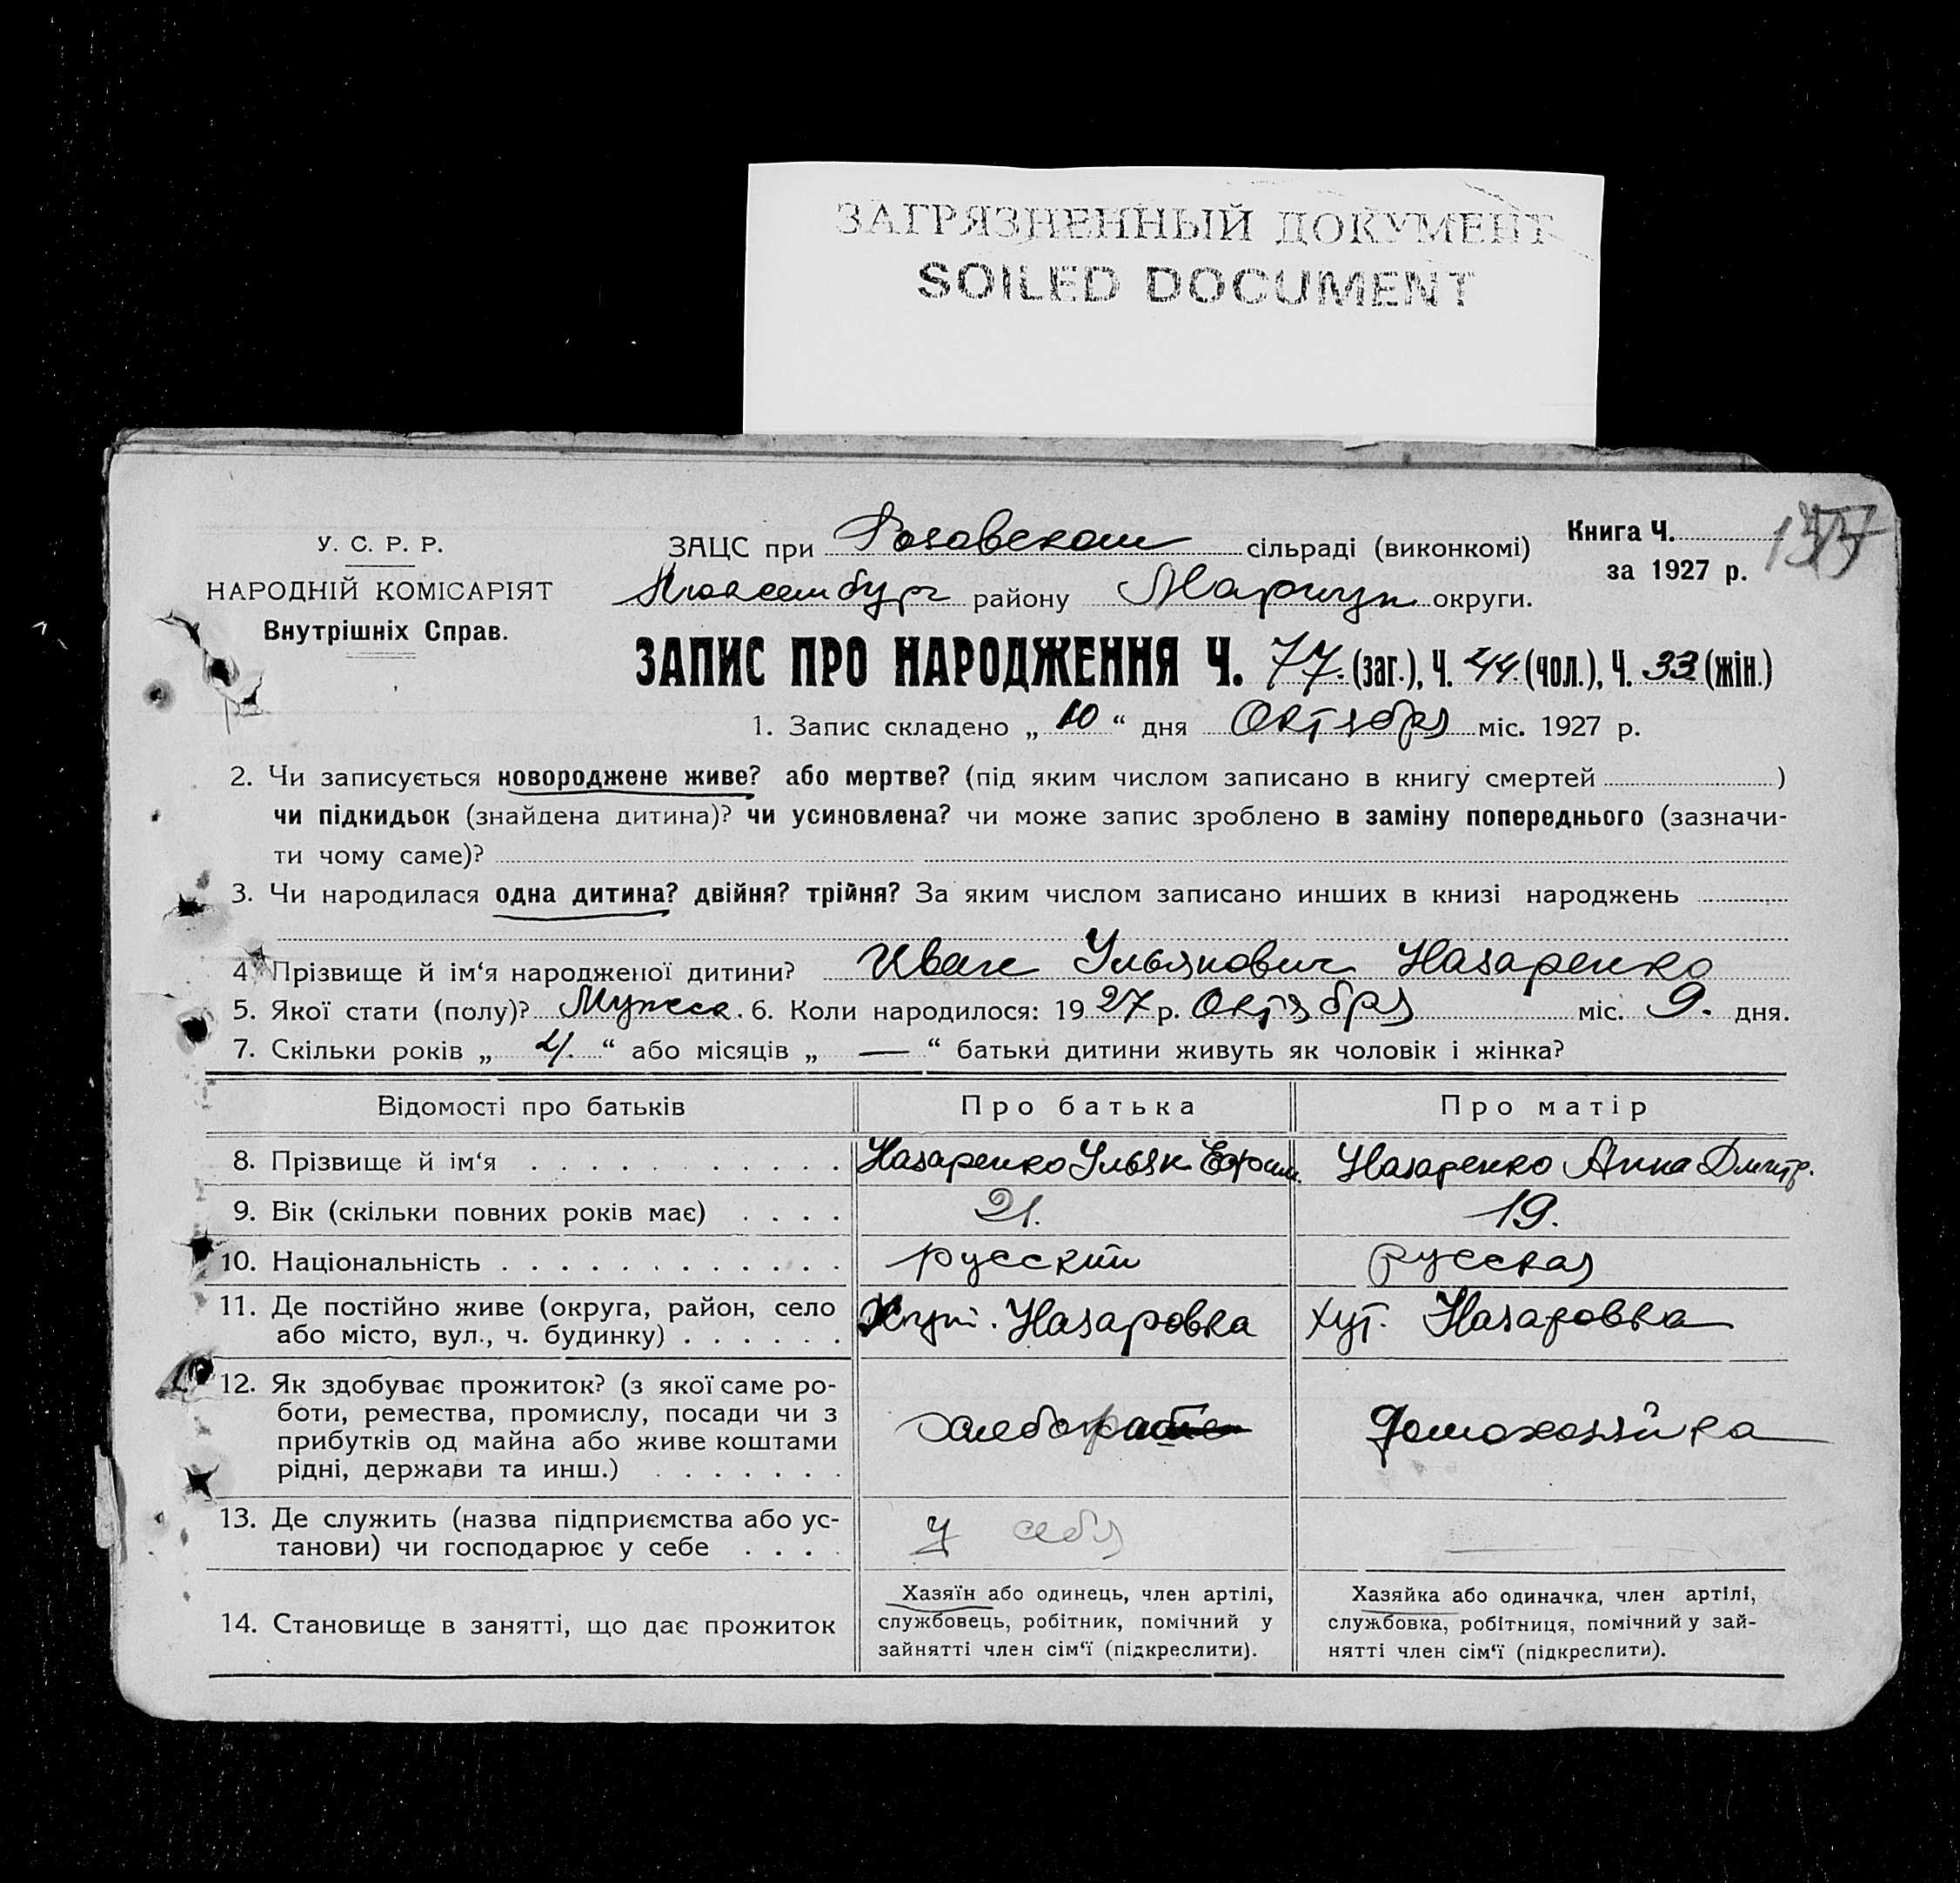 ЗАГРЯЗНЕННЫЙ ДОКУМЕНТ
SOILED DOCUMENT
У. С. Р. Р.
НАРОДНІЙ КОМІСАРІЯТ
Внутрішніх Справ.
ЗАЦС при Розовском сільраді (виконкомі)
Люксембург району Мариуп округи.
Книга Ч.
за 1927 р.
ЗАПИС ПРО НАРОДЖЕННЯ Ч. 77. (заг.), Ч. 44. (чол.), Ч. 33 (жін.)
1. Запис складено „ 10 “ дня Октября міс. 1927 р.
2. Чи записується новороджене живе? або мертве? (під яким числом записано в книгу смертей )
чи підкидьок (знайдена дитина)? чи усиновлена? чи може запис зроблено в заміну попереднього (зазначи-
ти чому саме)?
3. Чи народилася одна дитина? двійня? трійня? За яким числом записано инших в книзі народжень
4. Прізвище й ім‘я народженої дитини? Иван Ульянович Назаренко
5. Якої стати (полу)? Мужск. 6. Коли народилося: 1927 р. Октября міс. 9. дня.
7. Скільки років „ “ або місяців „ — “ батьки дитини живуть як чоловік і жінка?
Відомості про батьків Про батька Про матір
8. Прізвище й ім‘я Назаренко Ульян Ефрем. Назаренко Анна Дмитр.
9. Вік (скільки повних років має) 21. 19.
10. Національність русский русская
11. Де постійно живе (округа, район, село
або місто, вул., ч. будинку) Хут. Назаровка хут. Назаровка
12. Як здобуває прожиток? (з якої саме ро-
боти, ремества, промислу, посади чи з
прибутків од майна або живе коштами
рідні, держави та инш.) домохозяйка
13. Де служить (назва підприємства або ус-
танови) чи господарює у себе у себя
14. Становище в занятті, що дає прожиток
Хазяїн або одинець, член артілі,
службовець, робітник, помічний у
зайнятті член сім‘ї (підкреслити).
Хазяйка або одиначка, член артілі,
службовка, робітниця, помічний у зай-
нятті член сім‘ї (підкреслити).